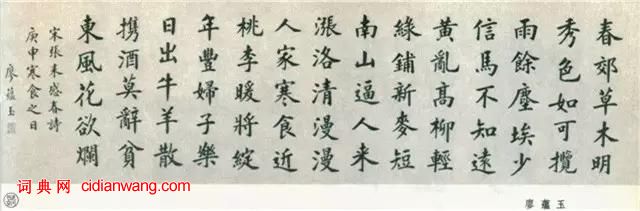 春郊草木明
秀色如可攬
雨餘塵埃少
信馬不知遠
黃亂高柳輕
綠鋪新麥短
南山逼人来
漲洛清漫漫
人家寒食近
桃李暖將綻
年豐婦子樂
日出牛羊散
携酒莫辭貧
東風花欲爛
宋張耒感春詩
庚申寒食之日
廖蘊玉
词典网 cidianwang.com
廖蘊玉